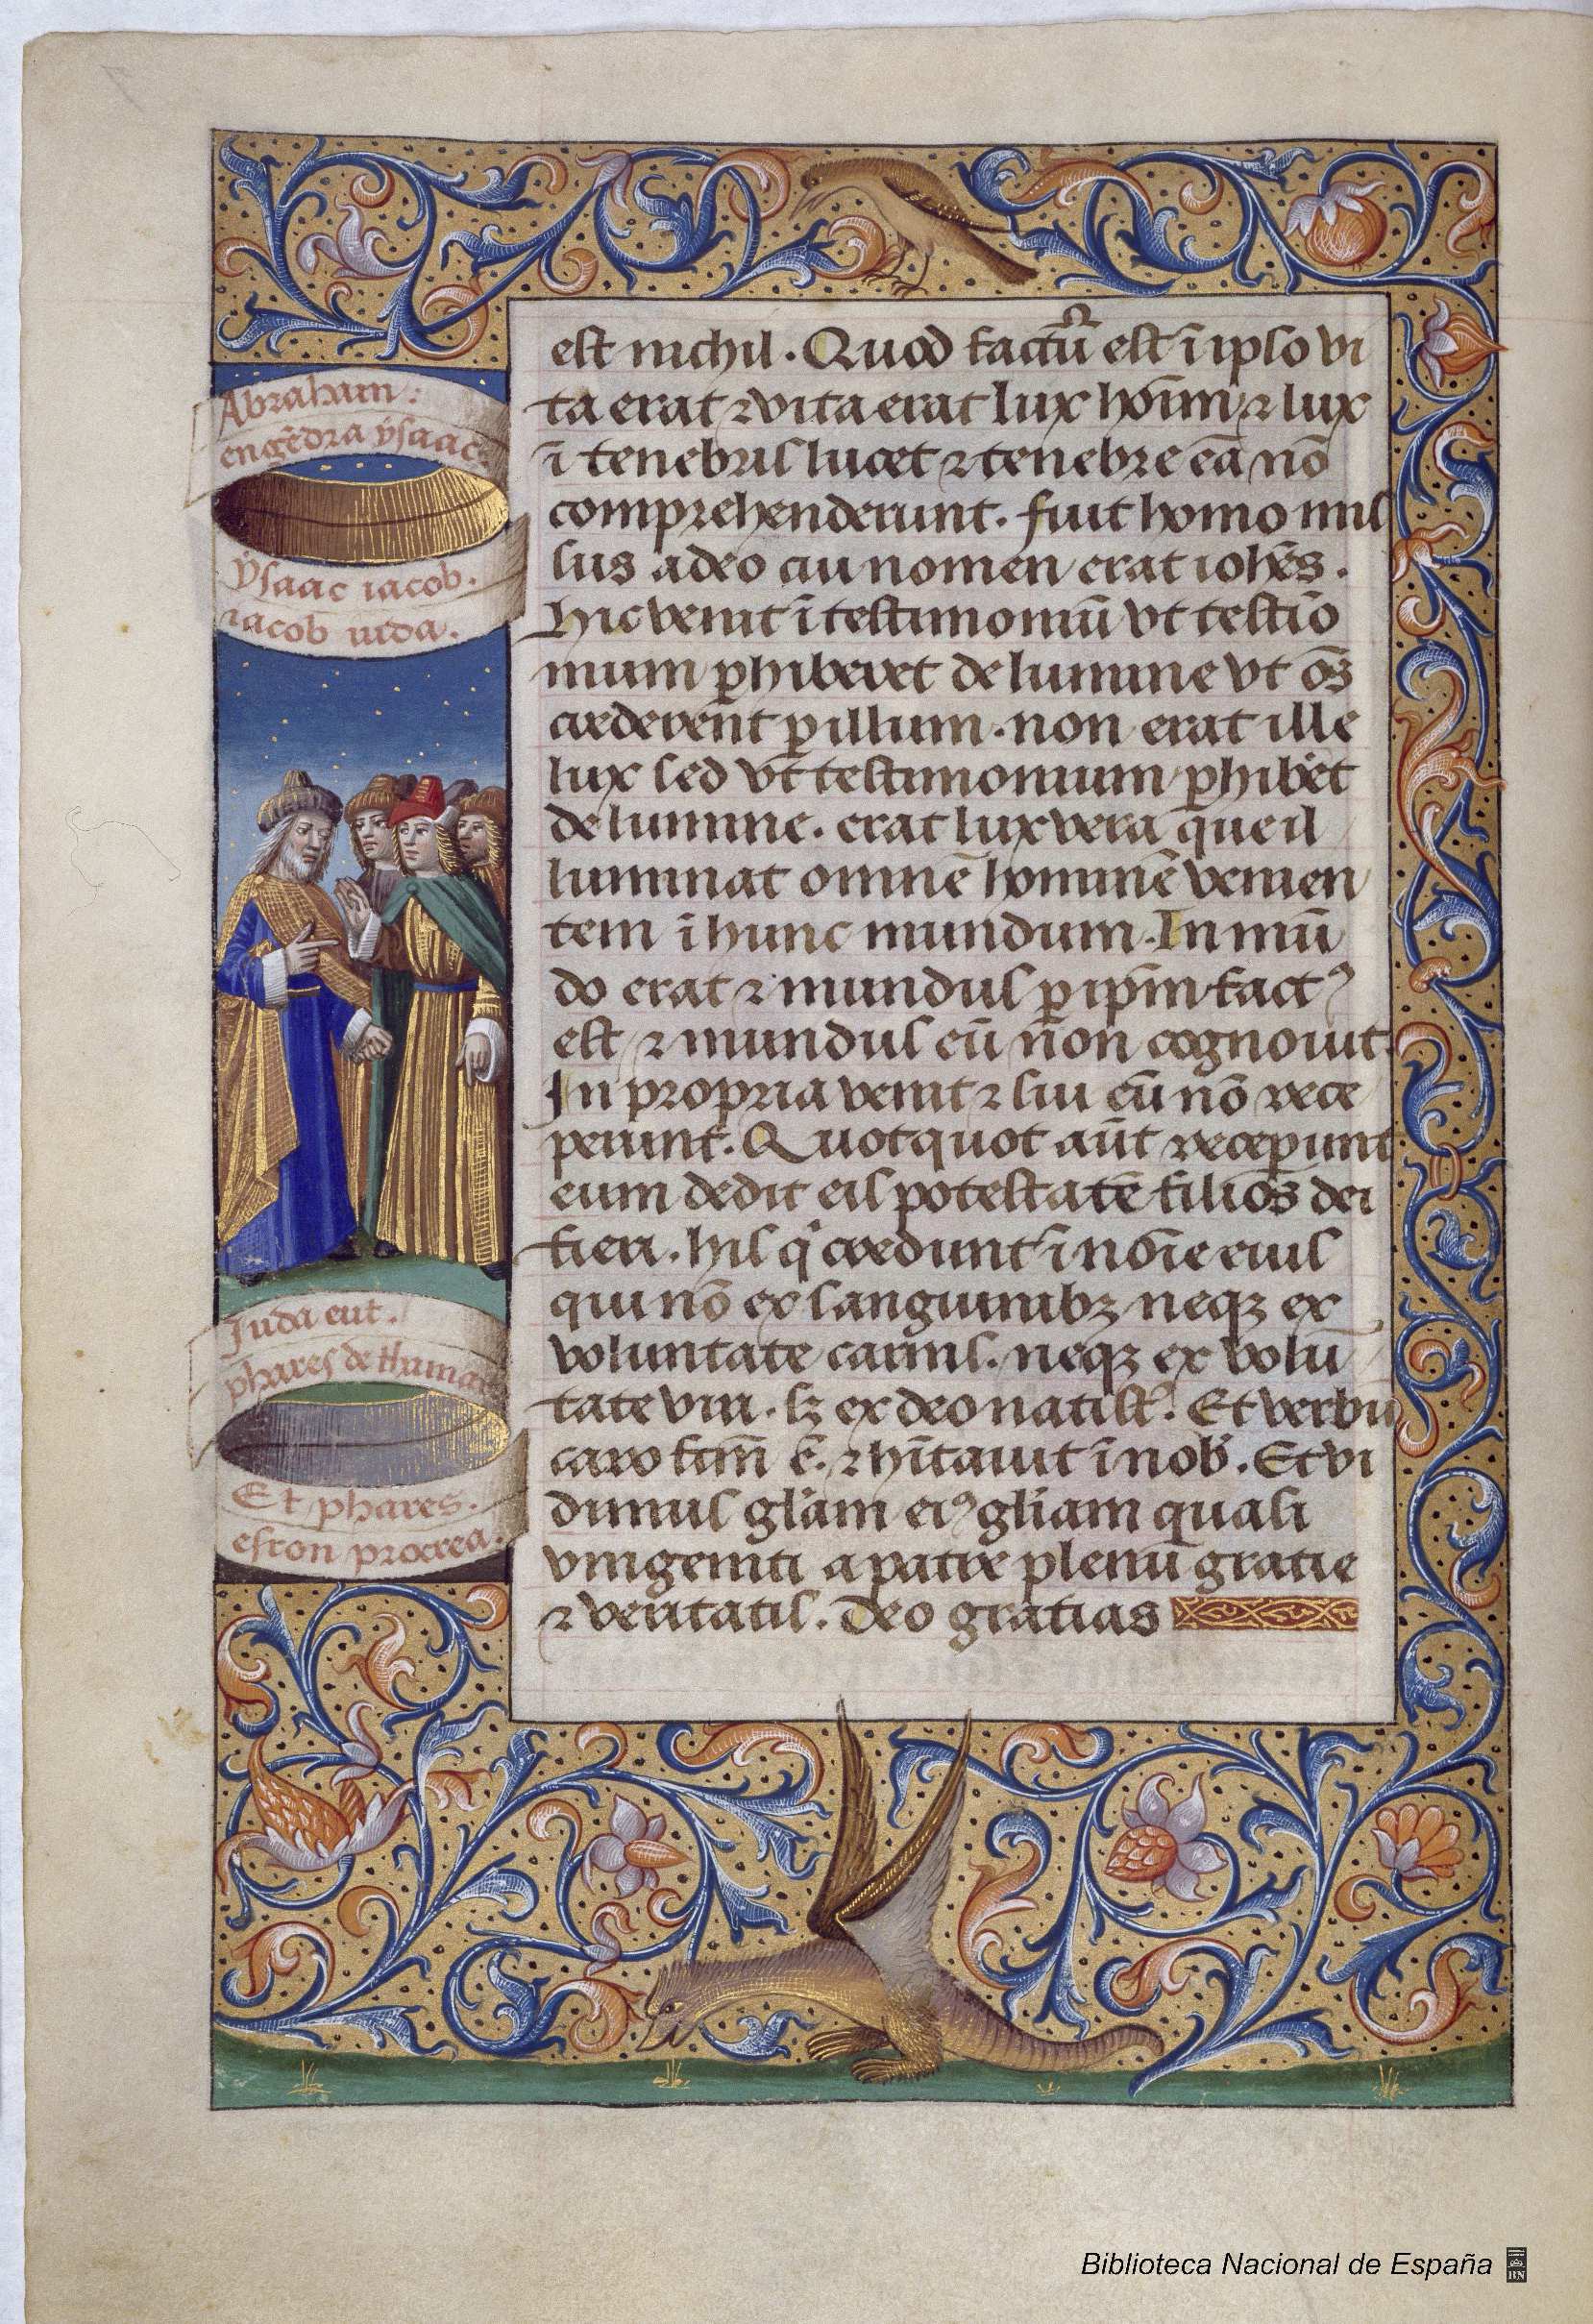 Abraham:
engēdra ysaac.
ysaac iacob.
iacob iuda.
Juda eut.
phares de thamar
Et phares.
esron procrea.
est nichil. Quod factū est ī ipso vi
ta erat ⁊ vita erat lux hoīm ⁊ lux
ī tenebris lucet ⁊ tenebre eā nō
comprehenderunt. fuit homo mis
sus a deo cui nomen erat iohēs.
Hic venit ī testimoniū vt testīo
nium ꝑhiberet de lumine vt oēs
crederēnt ꝑ illum. non erat ille
lux sed vt testimonium ꝑhibēt
de lumine. erat lux vera que il
luminat omnē hominē venien
tem ī hunc mundum. In mū
do erat ⁊ mundus ꝑ ipm̄ factꝰ
est ⁊ mundus eū non cognouit.
In propria venit ⁊ sui eū nō rece
perunt. Quotquot aūt receꝑunt
eum dedit eis potestatē filios dei
fieri. his qͥ credunt ī noīe eius
qui nō ex sanguinibꝫ neqꝫ ex
voluntate carnis. neqꝫ ex volū
tate viri. sꝫ ex deo nati st̄. Et verbū
caro fcm̄ ē. ⁊ hītauit ī nob̄. Et vi
dimus gl̄am eiꝰ gl̄iam quasi
vnigeniti a patre plenū gratie
⁊ veritatis. Deo gratias
Biblioteca Nacional de España
BN